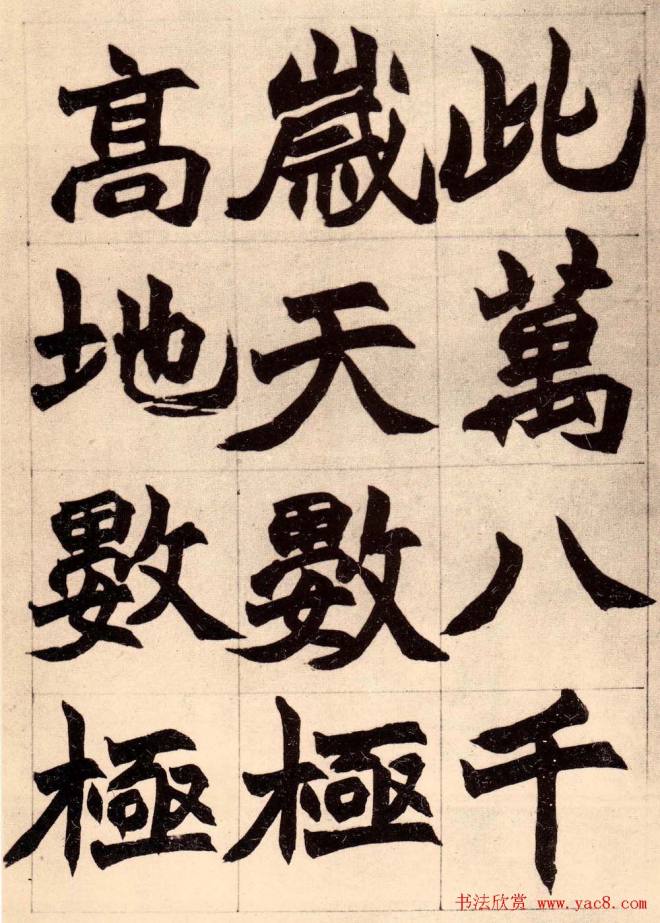 此萬八千
歲天數極
髙地數極
书法欣赏 www.yac8.com